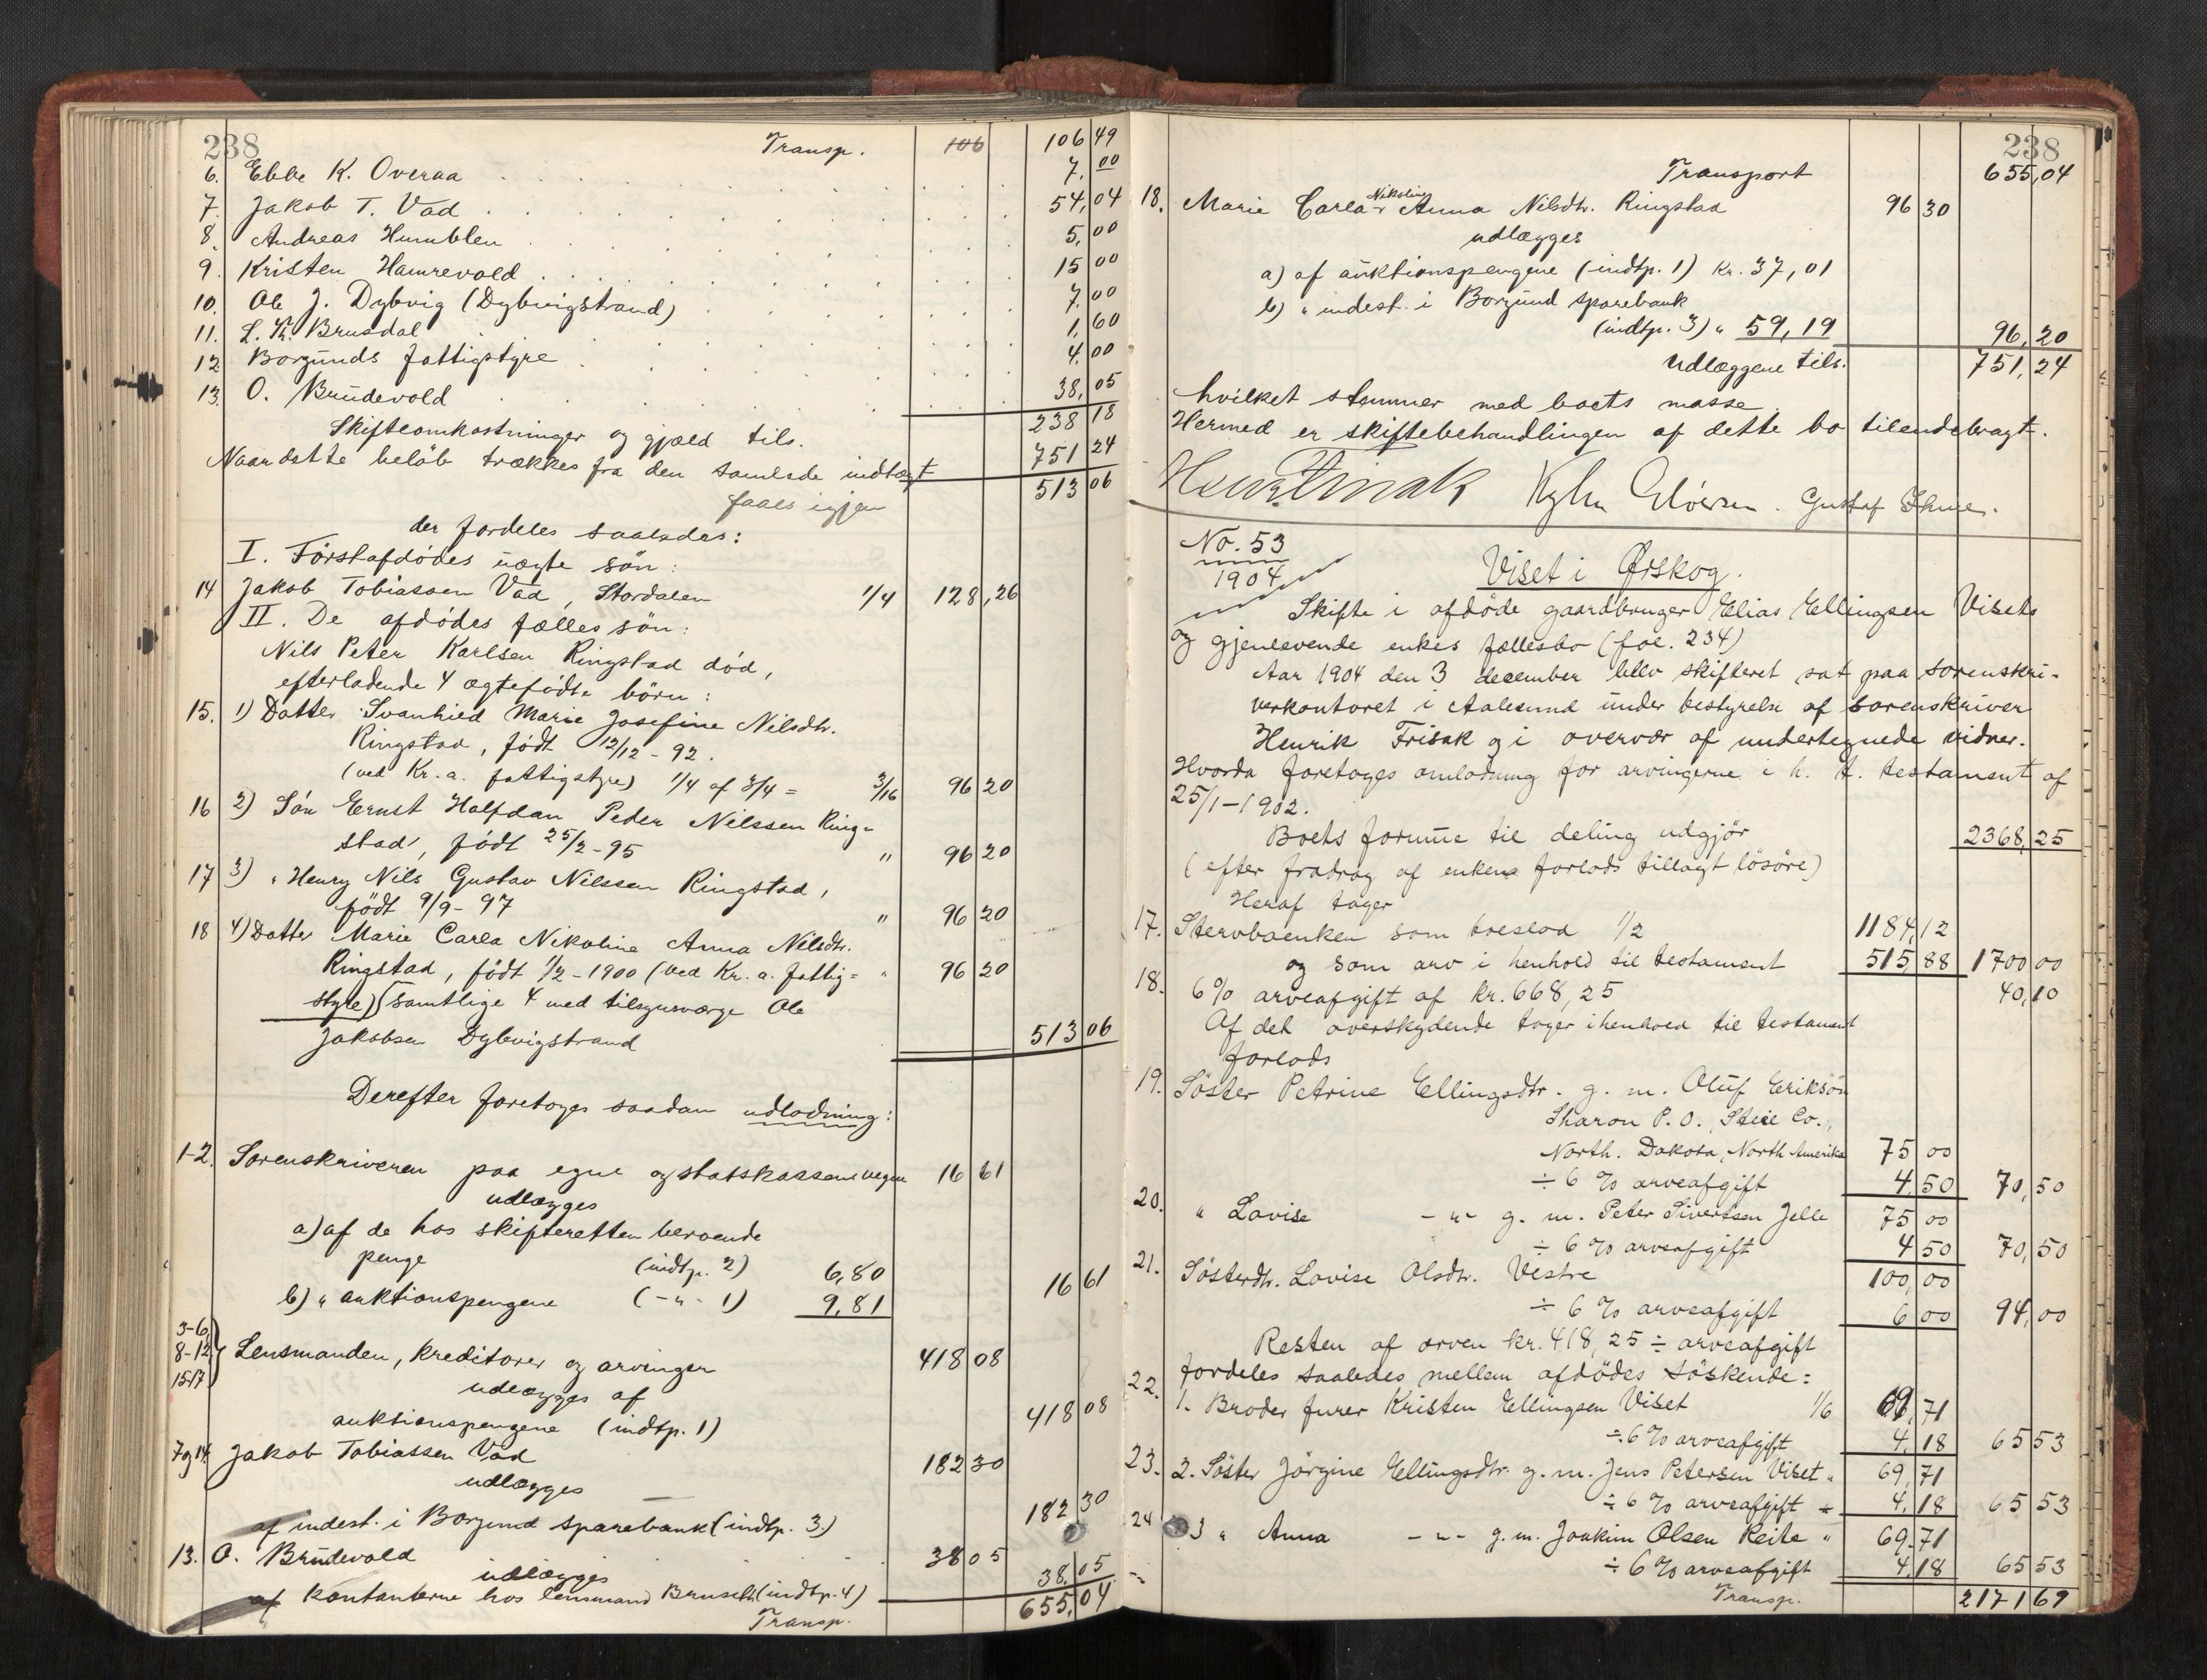 238
Transp. 106 106 49
6. Ebbe K. Overaa 7,00
7. Jakob T. Vad 54,04
8. Andreas Humblen 5,00
9. Kristen Hamrevold 15 00
10. Ole J. Dybvig (Dybvigstrand) 7,00
11. L. Kr. Brusdal 1,60
12 Borgunds fattigstyre 4,00
13. O. Brudevold 38,05
Skifteomkostninger og gjæld tils. 238 18
Naar dette beløb trækkes fra den samlede indtægt 751 24
faaes igjen 513 06
der fordeles saaledes:
I. Førstafdødes uægte søn:
14 Jakob Tobiassen Vad, Stordalen 1/4 128,26
II. De afdødes fælles søn:
Nils Peter Karlsen Ringstad død,
efterladende 4 ægtefødte børn:
15. 1) Datter Svanhied Marie Josefine Nilsdtr.
Ringstad, født 12/12 - 92.
(ved Kr. a. fattigstyre) 1/4 af 3/4 = 3/16 96 20
16 2) Søn Ernst Halfdan Peder Nilssen Ring-
stad, født 25/2 - 95 " 96 20
17 3) " Henry Nils Gustav Nilssen Ringstad,
født 9/9 - 97 " 96 20
18 4) Datter Marie Carla Nikoline Anna Nilsdtr.
Ringstad, født 1/2 - 1900 (ved Kr. a. fattig= " 96 20
styre) (Samtlige 4 med tilsynsværge Ole
Jakobsen Dybvigstrand 513 06
Derefter foretoges saadan udlodning:
1-2. Sorenskriveren paa egne og statskassens vegne 16 61
udlægges
a) af de hos skifteretten beroende
penge (indtp. 2) 6,80
b) " auktionspengene (-"- 1) 9,81 16 61
3-6,
8-12
15-17 Lensmanden, kreditorer og arvinger 418 08
udlægges af
auktionspengene (indtp. 1) 418 08
7 og 14. Jakob Tobiassen Vad 182 30
udlægges
af indest. i Borgund sparebank (indtp. 3.) 182 30
13. O. Brudevold 38 05
udlægges
af kontanterne hos lensmand (indtp. 4) 38,05
Transp. 655,04
238
Transport 655,04
18. Marie Carla Nikoline Anna Nilsdtr. Ringstad 96 30
udlægges
a) af auktionspengene (indtp. 1) Kr. 37,01
b) " indest. i Borgund sparebank
(indtp. 3) " 59,19 96,20
Udlæggene tils. 751,24
hvilket stemmer med boets masse
Hermed er skiftebehandlingen af dette bo tilendebragt.
No. 53
1904
Viset i Ørskog.
Skifte i afdøde gaardbruger Elias Ellingsen Visets
og gjenlevende enkes fællesbo (fol. 234)
Aar 1904 den 3 december blev skifteret sat paa sorenskri-
verkontoret i Aalesund under bestyrelse af sorenskriver
Henrik Frisak og i overvær af undertegnede vidner.
Hvorda foretoges omlodning for arvingerne i h. t. testament af
25/1-1902.
Boets formue til deling udgjør 2368,25
(efter fradrag af enkens forlods tillagt løsøre)
Heraf tager
17. Stervboenken som boslod 1/2 1184,12
og som arv i henhold til testament 515 88 1700 00
18. 6% arveafgift af kr. 668,25 40,10
Af det overskydende tager i henhold til testament
forlods
19. Søster Petrine Ellingsdtr. g. m. Oluf Erikson
Sharon P. O., Steele Co.,
North. Dakota, North Amerika 75 00
÷ 6 % arveafgift 4,50 70,50
20. " Lovise -"- g. m. Peter Sivertsen Jelle 75 00
÷ 6 % arveafgift 4 50 70,50
21. Søsterdtr. Lovise Olsdtr. Vestre 100,00
÷ 6 % arveafgift 6 00 94,00
Resten af arven kr. 418,25 ÷ arveafgift
fordeles saaledes mellem afdødes søskende:
22. 1. Broder furer Kristen Ellingsen Viset 1/6 69,71
÷ 6 % arveafgift 4,18 65 53
23. 2. Søster Jørgine Ellingsdtr. g. m. Jens Petersen Viset " 69,71
÷ 6 % arveafgift 4,18 65 53
24 3 " Anna -"- g. m. Joakim Olsen Reite " 69,71
÷ 6 % arveafgift 4,18 65 53
Transp. 2171 69